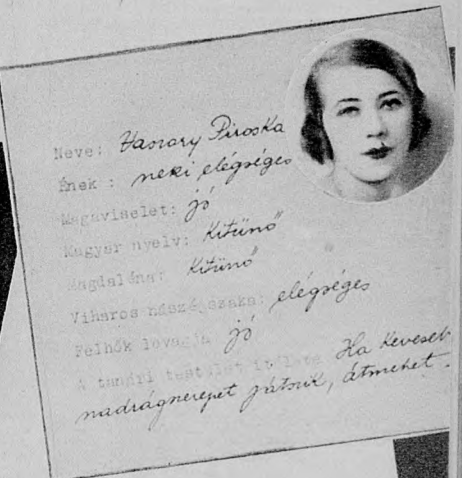 Neve: Vaszary Piroska
Ének : neki elégséges
Magaviselet: jó
Magyar nyelv: Kitünő
Magdaléna: Kitünő
Viharos nászéjszaka: elégséges
Felhők lovagja jó
A tanári testület itélete Ha keveset
nadrágszerepet játszik, átmehet.